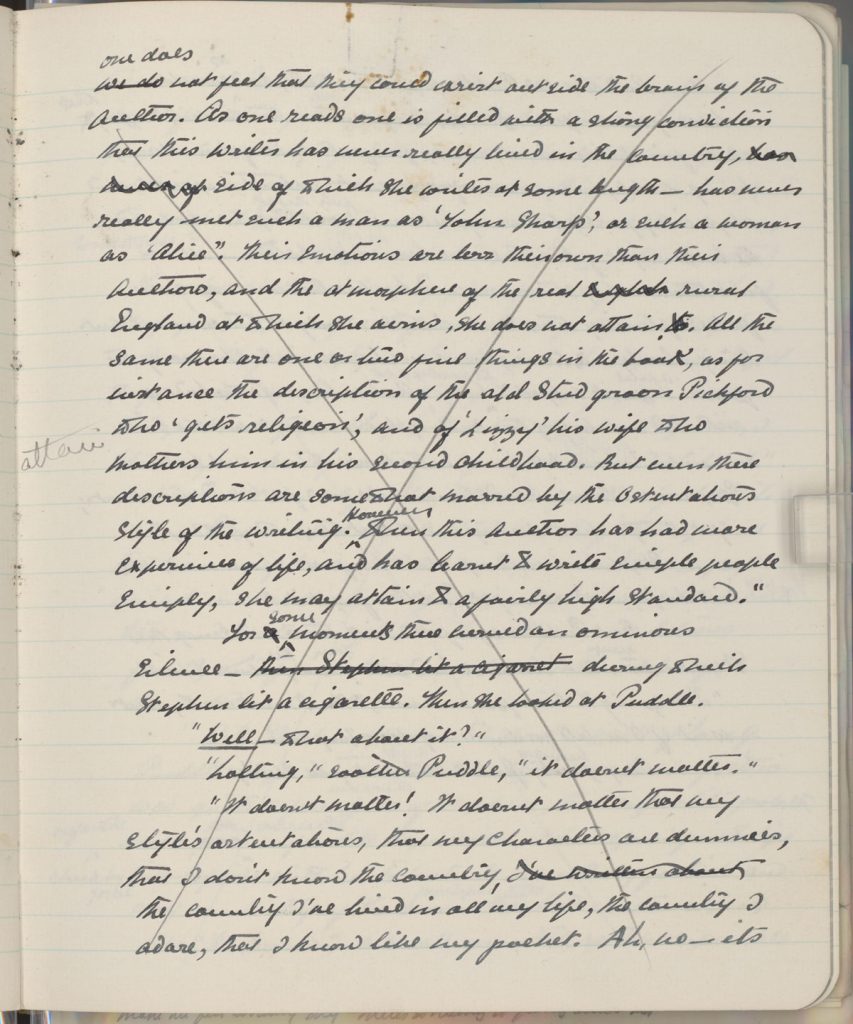 one does
we do not feel that they could exist outside the brain of the
Author. As one reads one is filled with a strong conviction
that this writer has never really lived in the country, has
side of which she writes at some length — has never
really met such a man as 'John Sharp', or such a woman
as 'Alice". Their emotions are less their own than their
Authors, and the atmosphere of the real rural
England at which she aims, she does not attain to. All the
same there are one or two fine things in the book, as for
instance the description of the old Stud groom Pickford
who 'gets religeon', and of 'Lizzy' his wife who
mothers him in his second childhood. But even these
attain
descriptions are somewhat marred by the Ostentatious
Style of the writing. However When this Author has had more
Experience of life, and has learnt to write simple people
Simply, she may attain to a fairly high Standard."
For a some moments there herned an ominous
Silence — then Stephen lit a cigaret during which
Stephen lit a cigarette. Then she looked at Puddle.
"Well — what about it?"
"Nothing," Puddle, "it doesnt matter."
"It doesnt matter! It doesnt matter that my
Style's ostentatious, that my Characters are dummies,
that I don't know the country, I've written about
the country I've lived in all my life, the country I
adore, that I know like my pocket. Ah, no — its